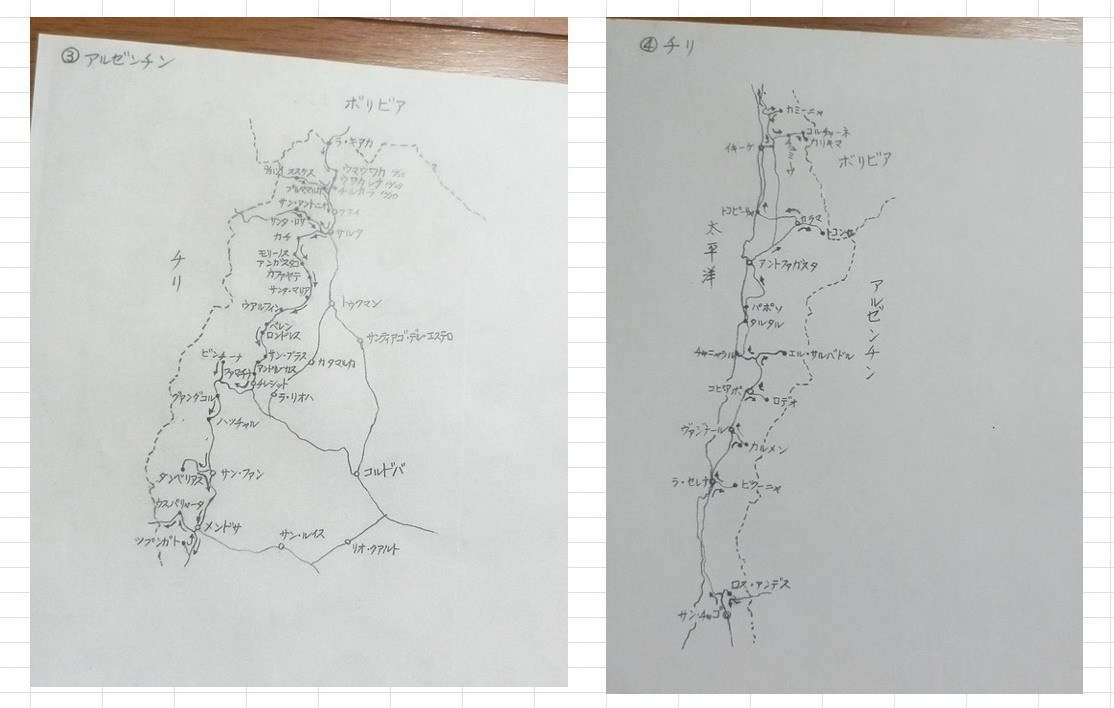 ③ アルゼンチン
ボリビア
ラ・キアカ
ウマウワカ
ススケス
プルママルカ
チルカラ
サン・アントニオ
フフイ
サンタ・ロサ
サルタ
カチ
モリーノス
アンガスタコ
カファヤテ
サンタ・マリア
チリ
ウアルフィン
トゥクマン
ベレン
ロンドレス
サンティアゴ・デル・エステロ
ビンチーナ
サン・ブラス
カタマルカ
ファマチナ
チレシット
ラ・リオハ
ヴァンダコル
ハッチャル
タンベリアス
サン・ファン
コルドバ
ウスパリャータ
メンドサ
サン・ルイス
ツプンガト
リオ・クアルト
④ チリ
カミーニャ
コルチャーネ
カリキマ
イキーケ
チュスミーサ
ボリビア
トコピージャ
カラマ
トコンセ
太平洋
アントファガスタ
アルゼンチン
パポソ
タルタル
チャニャラル
エル・サルバドル
コピアポ
ロデオ
ヴァジェナール
カルメン
ラ・セレナ
ビクーニャ
ロス・アンデス
サンチャゴ